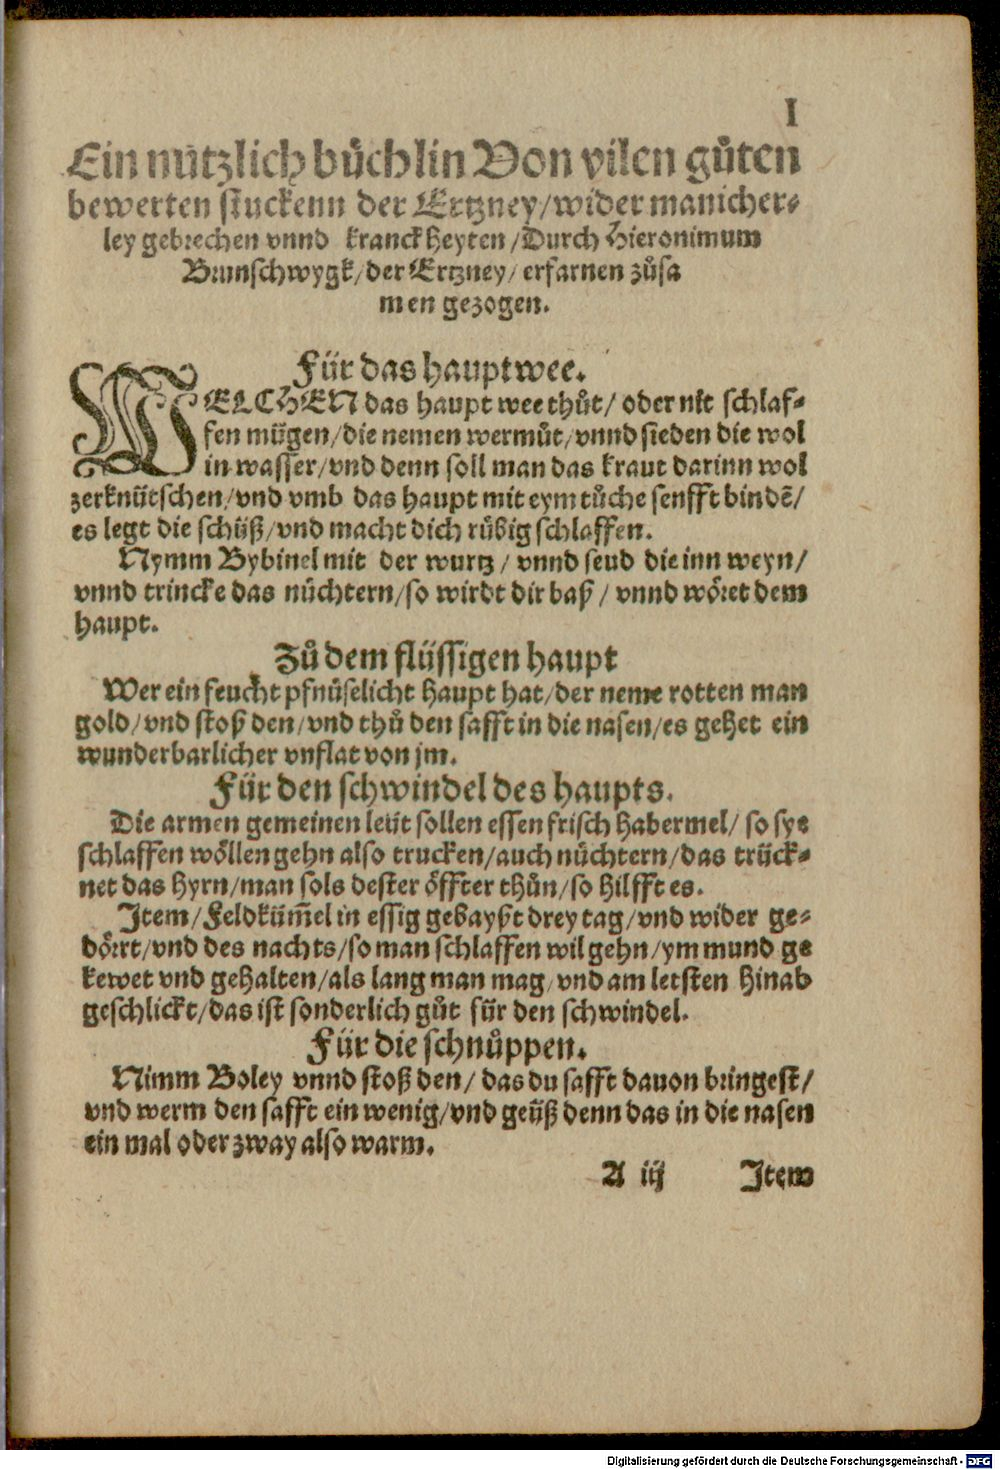 I
Ein nützlich bůchlin Von vilen gůten
bewerten stuckenn der Ertzney/wider manicher-
ley gebrechen vnnd kranckheyten/Durch Hieronimum
Brunschwygk/der Ertzney/erfarnen zůsa
men gezogen.
Für das hauptwee.
WELCHEN das haupt wee thůt/oder nit schlaf-
fen mügen/die nemen wermůt/vnnd sieden die wol
in wasser/vnd denn soll man das kraut darinn wol
zerknütschen/vnd vmb das haupt mit eym tůche senfft bindē/
es legt die schüß/vnd macht dich rübig schlaffen.
Nymm Bybinel mit der wurtz/vnnd seud die inn weyn/
vnnd trincke das nüchtern/so wirdt dir baß/vnnd wöret dem
haupt.
Zů dem flüssigen haupt
Wer ein feucht pfnüselicht haupt hat/der neme rotten man
gold/vnd stoß den/vnd thů den safft in die nasen/es gehet ein
wunderbarlicher vnflat von jm.
Für den schwindel des haupts.
Die armen gemeinen leüt sollen essen frisch habermel/so sye
schlaffen wöllen gehn also trucken/auch nüchtern/das trück-
net das hyrn/man sols dester öffter thůn/so hilfft es.
Item/Feldküm̄el in essig gebayßt drey tag/vnd wider ge-
dörrt/vnd des nachts/so man schlaffen wil gehn/ym mund ge
kewet vnd gehalten/als lang man mag/vnd am letsten hinab
geschlickt/das ist sonderlich gůt für den schwindel.
Für die schnůppen.
Nimm Boley vnnd stoß den/das du safft dauon bringest/
vnd werm den safft ein wenig/vnd geüß denn das in die nasen
ein mal oder zway also warm.
A iij Item
Digitalisierung gefördert durch die Deutsche Forschungsgemeinschaft - DFG